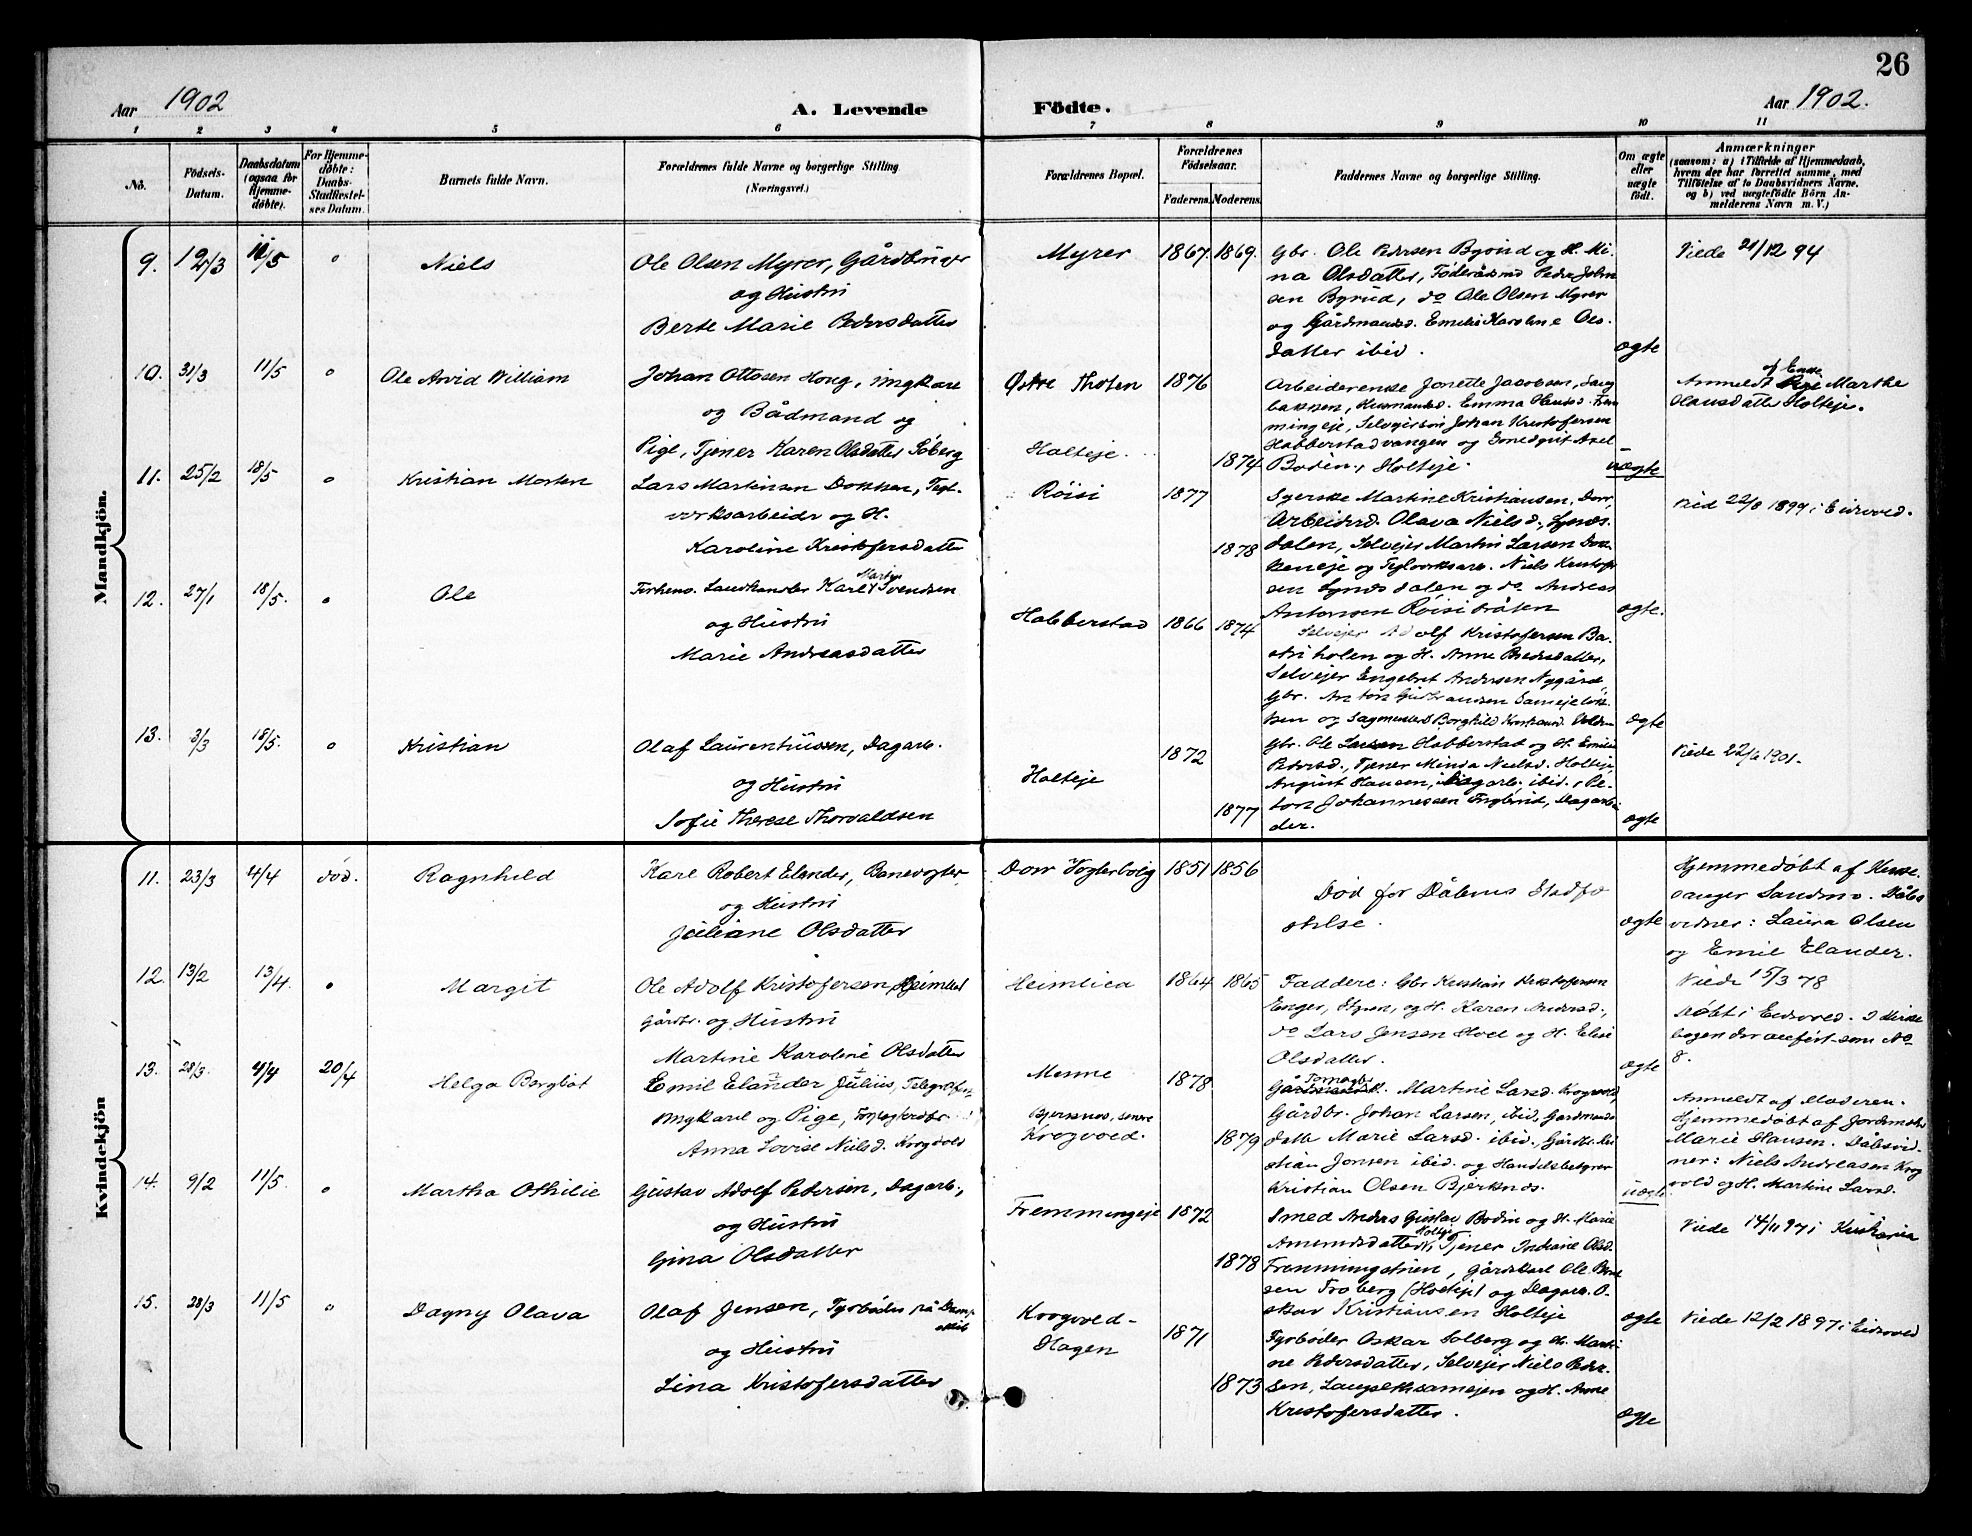 26
Aar 1902
A. Levende Födte.
Aar 1902.
1 2 3 4 5 6 7 8 9 10 11
No.
Födsels-Datum.
Daabsdatum (ogsaa for Hjemmedöbte).
For Hjemmedöbte: Daabs-Stadfestelses Datum.
Barnets fulde Navn.
Forældrenes fulde Navne og borgerlige Stilling (Næringsvei.)
Forældrenes Bopæl.
Forældrenes Födselsaar.
Faderens. Moderens.
Faddernes Navne og borgerlige Stilling.
Om ægte eller uægte födt.
Anmærkninger
(saasom: a) i Tilfælde af Hjemmedaab, hvem der har forrettet samme, med Tilföielse af to Daabsvidners Navne, og b) ved uægtefödte Börn Anmelderens Navn m. V.)
Mandkjön.
9. 12/3 11/5 " Niels
Ole Olsen Myrer, Gårdbruger
og Hustru
Berte Marie Pedersdatter
Myrer 1867. 1869.
Gbr. Ole Pedersen Byrud og H. Mi-
na Olsdatter, Föderådsmd Peder John-
sen Byrud, do Ole Olsen Myrer
og Gårdmandsd. Emelie Karoline Ols-
datter ibid.
ægte
Viede 21/12 94
10. 31/3 11/5 " Ole Arvid William
Johan Ottosen Houg, ungkare
og Bådmand og
Pige, Tjener Karen Olsdatter Söberg
Østre Thoten 1876
Holteje. 1874
Arbeiderenke Jonette Jacobsen,
bakken, Husmandsd. Emma Hansd. Frem-
mingeje, Selveiersön Johan Kristofersen
Habberstadvangen og Axel
Bodin, Holteje.
uægte
Anmeldt af Enke Marthe
Hansdatter Holteje.
11. 25/2 18/5 " Kristian Morten
Lars Martinsen Dokken, Tegl-
verksarbeider og H.
Karoline Kristofersdatter
Röisi 1877 1878
Syerske Martine Kristiansen, Dorr,
Arbeidersd. Olava Nielsd., Lynes-
dalen, Selvejer Martin Larsen Dok-
keneje og Teglverksarb. Niels Kristof-
sen Lynesdalen og do Andreas
Antonsen Röisi bråten
ægte.
Vied 22/8 1899 i Eidsvold.
12. 27/1 18/5. " Ole
Forhenv. Landhandler Karl Martin Svendsen
og Hustru
Marie Andreasdatter
Habberstad 1866 1874
Selvejer Adolf Kristofersen Ba-
kholen og H. Anne Pedersdatter,
Selvejer Engebret Andersen Nygård,
Gbr. Anton Gudbrandsen Samejelök-
ken og Sagmesterd Borghild
ægte
13. 3/3 18/5. " Kristian
Olaf Laurentiussen, Dagarb.
og Hustru
Sofie Therese Thorvaldsen
Holteje 1872 1877
Gbr. Ole Larsen Habberstad og H. Emilie
Pedersd., Tjener Minda Nielsd. Holteje,
August Hansen, Dagarb. ibid., Pe-
ter Johannessen Englund, Dagarbei-
der.
ægte
Viede 22/6 1901.
Kvindekjön
11. 23/3 4/4 död. Ragnhild
Karl Robert Elander, Banevogter
og Hustru
Juliane Olsdatter
Dorr Vogterbolig 1851 1856
Död för Dåbens Stadfæ-
stelse.
ægte
Hjemmedöbt af Kirke-
sanger Sandmo. Dåbs-
vidner: Laura Olsen
og Emil Elander.
12. 13/2 13/4. " Margit
Ole Adolf Kristofersen, Heimlid
Gårdbr. og Hustru
Martine Karoline Olsdatter
Heimlid 1864 1865
Faddere: Gbr Kristian Kristofersen
Enger, Styri, og H. Karen Andersd.,
do Lars Jensen Hoel og H. Elise
Olsdatter.
ægte
Viede 15/3 78
Döbt i Eidsvold. I Kirke-
bogen der anfört som No
8.
13. 28/3. 4/4 20/4 Helga Borgljot
Emil Elander Julius, Telegrafist,
Ungkarl og Pige,
Anna Lovise Nielsd. Krogvold
Menne 1878
Bjerknes, senere
Krogvold. 1879
Martine Larsd. Krogvold,
Gårdbr. Johan Larsen, ibid, Gårdmands-
datt. Marie Larsd. ibid., Gårdbr. Kri-
stian Jonsen ibid. og Handelsbetjener
Kristian Olsen Bjerknes.
uægte
Anmeldt af Moderen.
Hjemmedöbt af Jordmoder
Marie Hansen. Dåbsvid-
ner: Niels Andreasen Krog-
vold og H. Martine Larsd.
14. 9/2 11/5. " Martha Othilie
Gustav Adolf Pedersen, Dagarb.,
og Hustru
Gina Olsdatter
Fremmingeje 1872 1878
Smed Anders Gustav Bodin og H. Marie
Amundsdatter, Holteje, Tjener Indiane Olsd.
Fremmingstuen, Gårdskarl Ole
sen Froberg (Holteje) og Dagarb. O-
skar Kristiansen Holteje
ægte
Viede 14/11 97 i Kristiania
15. 28/3 11/5 " Dagny Olava
Olaf Jensen, Fyrböder på Damp-
skib
og Hustru
Lina Kristofersdatter
Krogvold-
Hagen 1871 1873
Fyrböder Oskar Solberg og H. Marti-
ne Pedersdatter, Selvejer Niels Peder-
sen, Langsethsamejen og H. Anne
Kristofersdatter.
ægte
Viede 12/2 1897 i Eidsvold